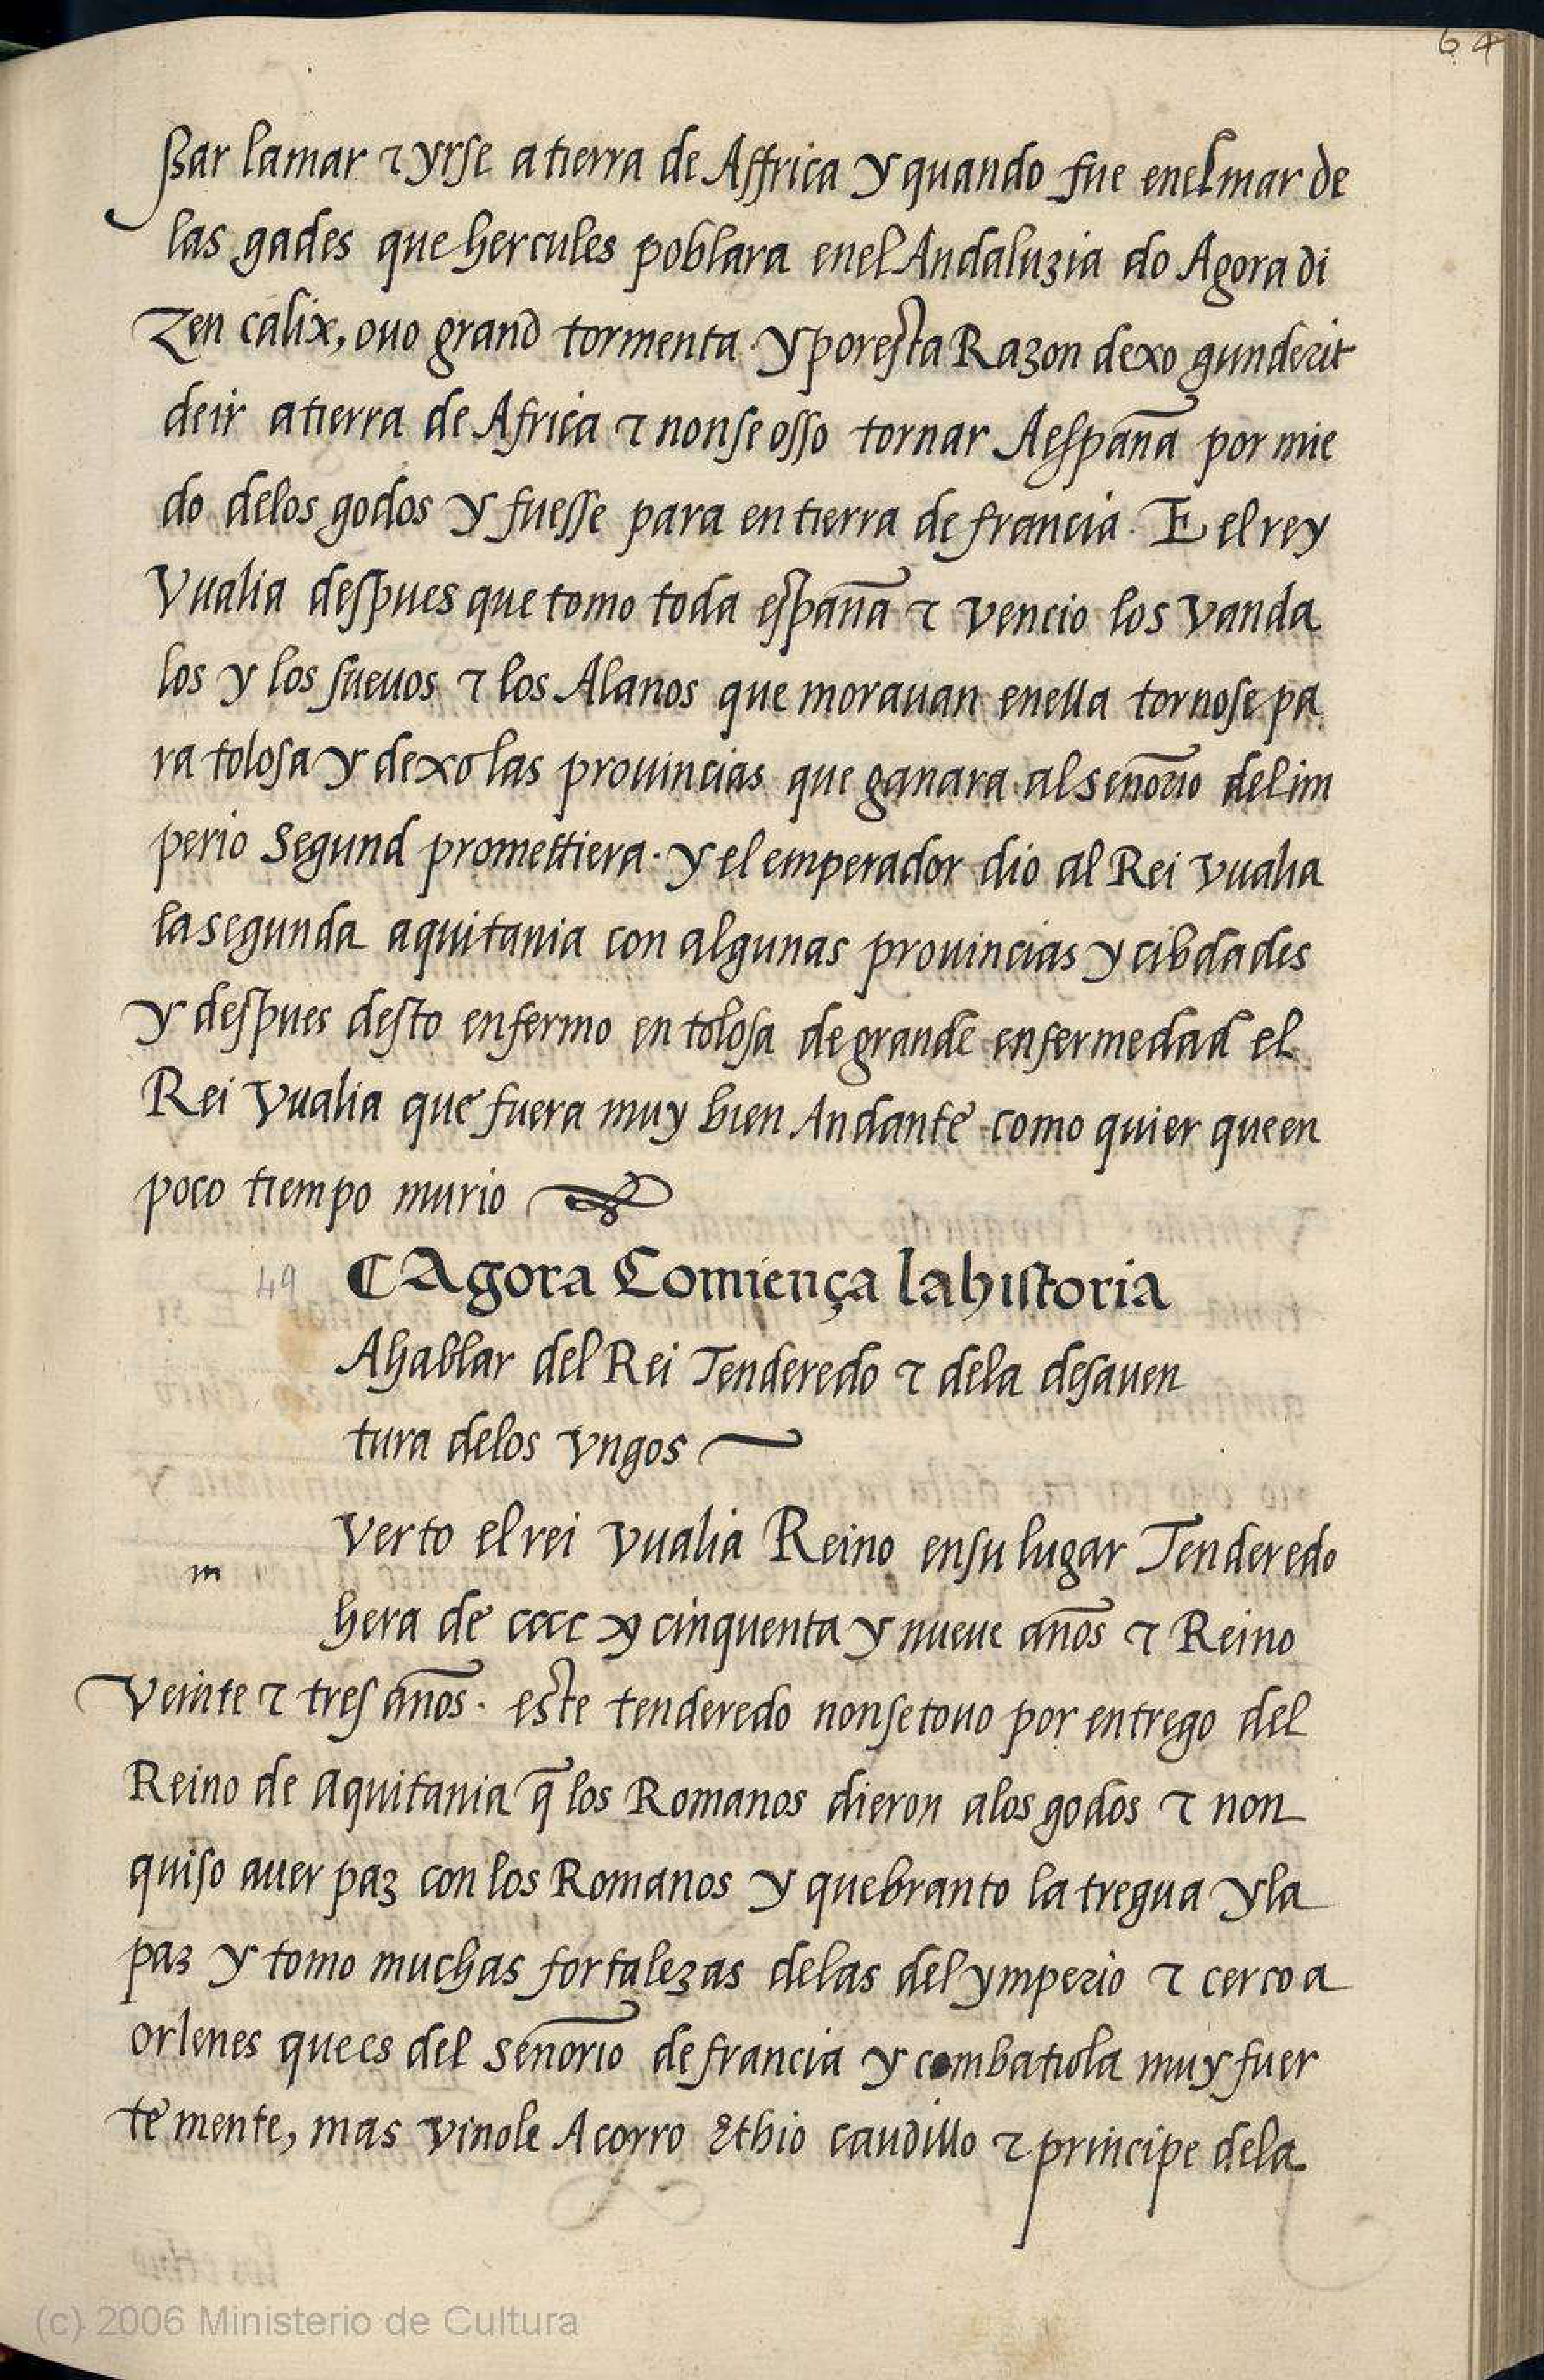 64
ßar lamar ⁊ yrse atierra de Affrica y quando fue enel mar de
las gades que hercules poblara enel Andaluzia do Agora di
Zen calix, ouo grand tormenta. y poresta Razon dexo gunderit
deir atierra de Africa ⁊ nonse osso tornar Aespãna por mie
do delos godos y fuesse para en tierra de francia. E el rey
Vualia despues que tomo toda espãna ⁊ vencio los vanda
los y los sueuos ⁊ los Alanos que morauan enella tornose pa
ra tolosa y dexo las prouincias que ganara al sẽnorio del im
perio Segund promettiera. y el emperador dio al Rei vualia
la segunda aquitania con algunas prouincias y cibdades
y despues desto enfermo en tolosa de grande enfermedad el
Rei Vualia que fuera muy bien Andante como quier que en
poco tiempo murio
49 ¶ Agora Comiença la historia
A hablar del Rei Tenderedo ⁊ dela desauen
tura delos vngos
m verto el rei vualia Reino ensu lugar Tenderedo
hera de cccc y cinquenta y nueue ãnos ⁊ Reino
Veinte ⁊ tres ãnos. este tenderedo nonse touo por entrego del
Reino de aquitania q̃ los Romanos dieron alos godos ⁊ non
quiso auer paz con los Romanos y quebranto la tregua y la
paz y tomo muchas fortalezas delas del ymperio ⁊ cerco a
orlenes que es del sẽnorio de francia y combatiola muy fuer
te mente, mas vinole Acorro Ethio caudillo ⁊ principe dela
(c) 2006 Ministerio de Cultura